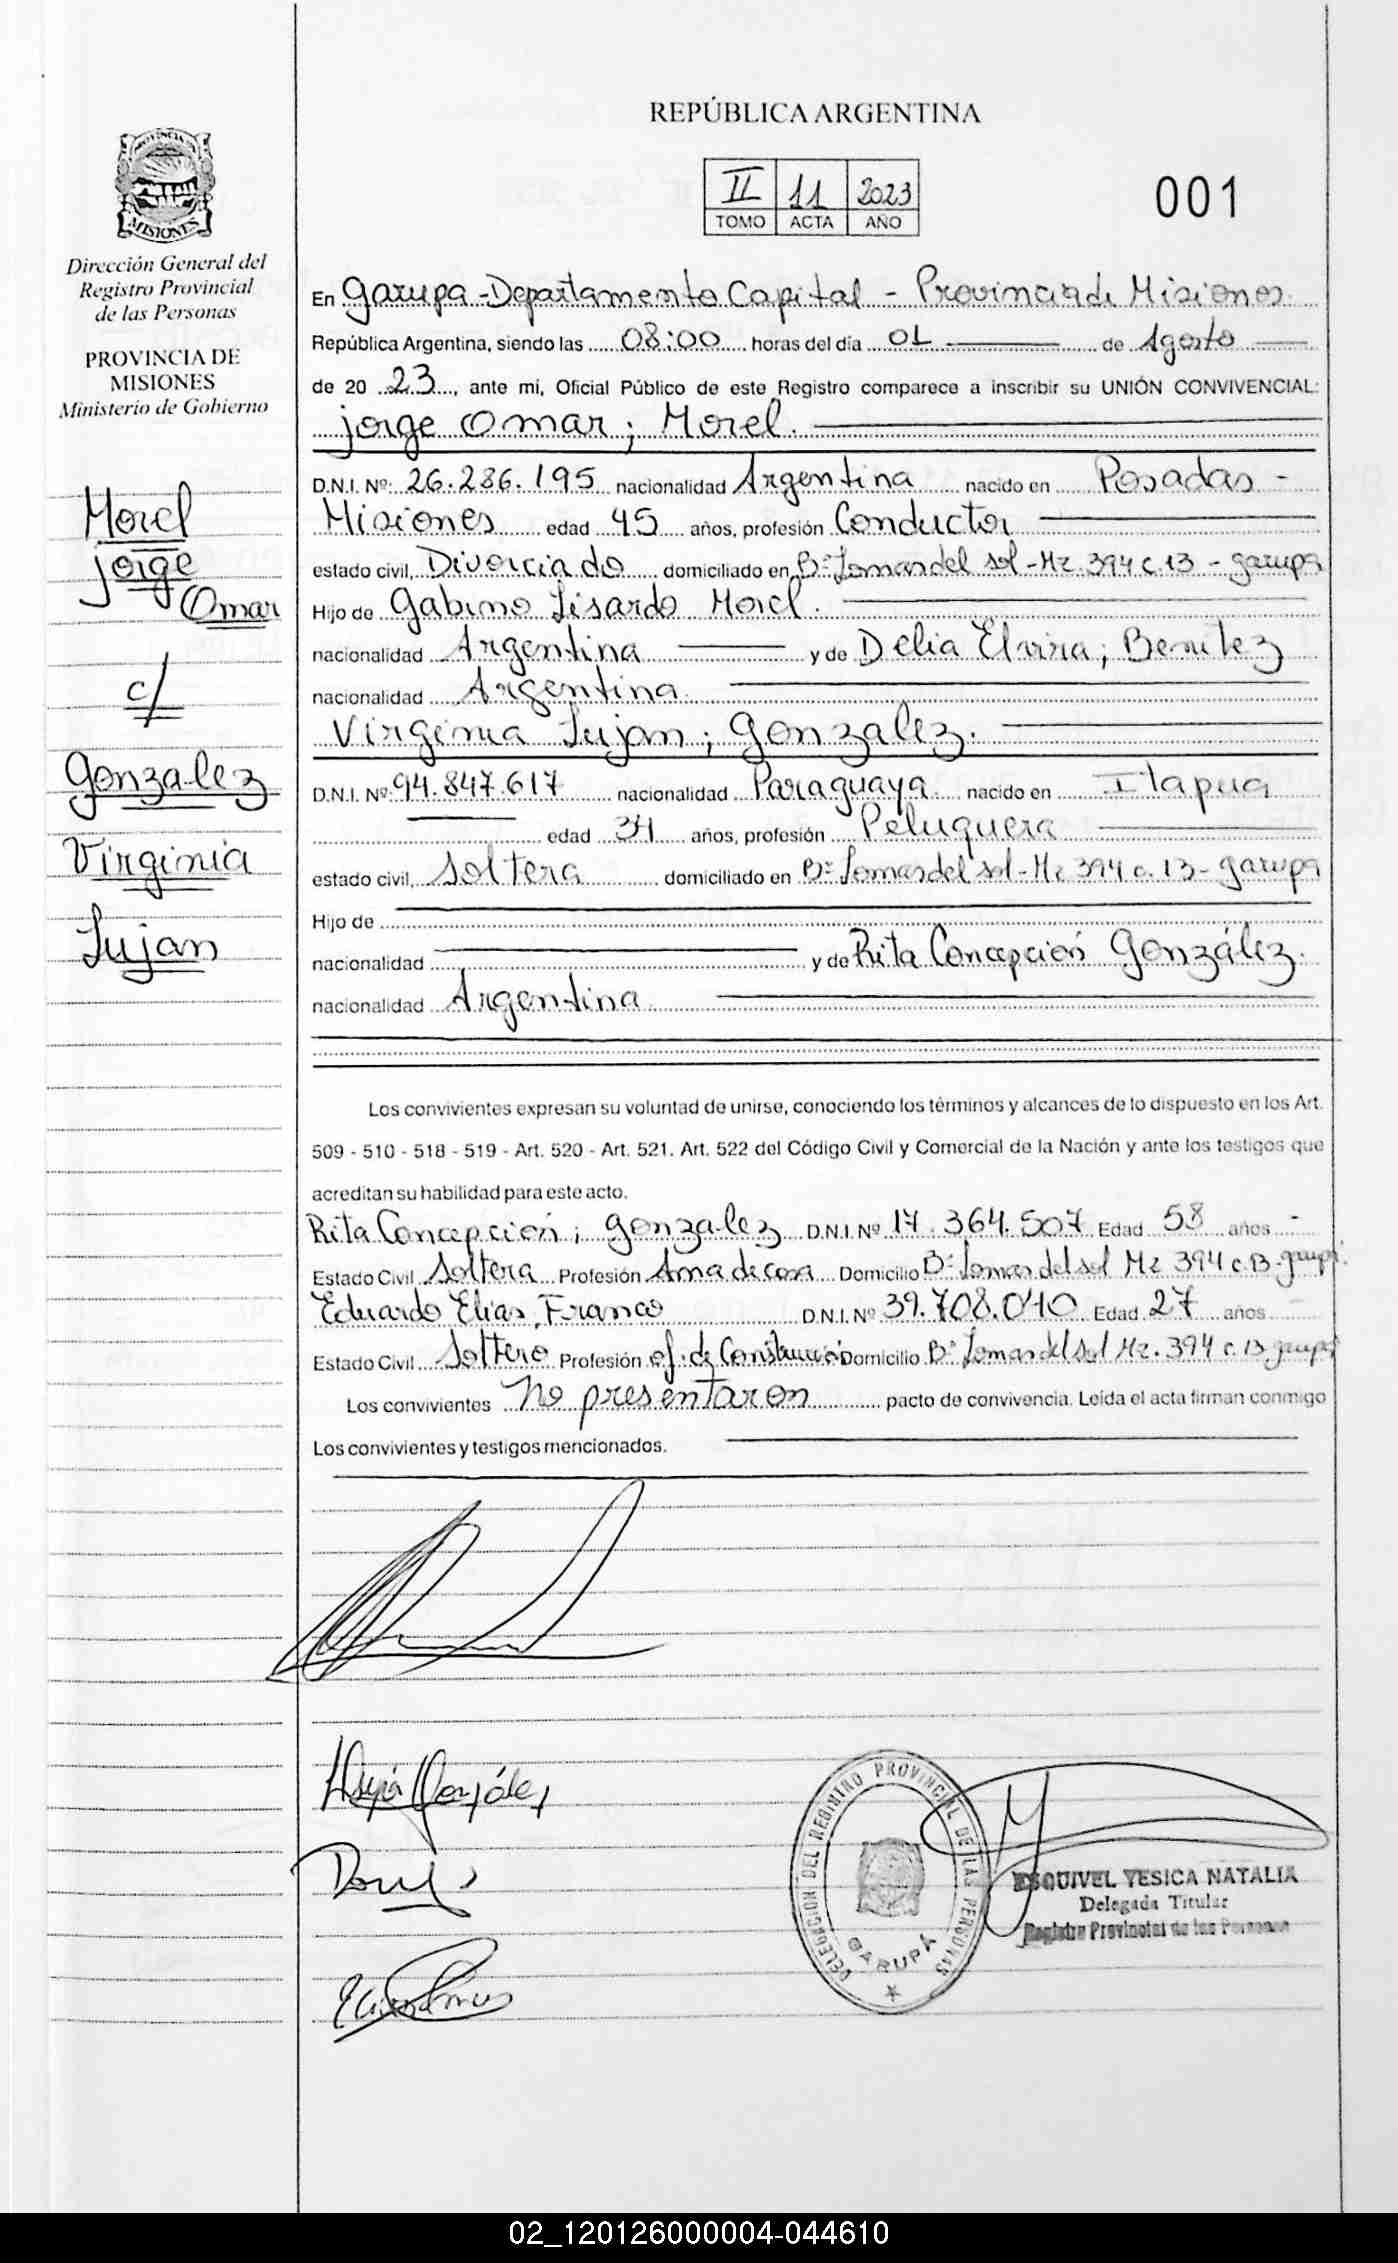 REPÚBLICA ARGENTINA
II 11 2023
TOMO ACTA AÑO
001
PROVINCIA
MISIONES
Dirección General del
Registro Provincial
de las Personas
PROVINCIA DE
MISIONES
Ministerio de Gobierno
Morel
jorge
Omar
c/
Gonzalez
Virginia
Lujan
En Garupa - Departamento Capital - Provincia de Misiones.
República Argentina, siendo las 08:00 horas del día 01 de Agosto
de 20 23, ante mi, Oficial Público de este Registro comparece a inscribir su UNIÓN CONVIVENCIAL:
jorge Omar; Morel.
D.N.I. Nº: 26.286.195 nacionalidad Argentina nacido en Posadas -
Misiones edad 45 años, profesión Conductor
estado civil, Divorciado domiciliado en Bº Lomas del sol - Mz 394 c.13 - garupa
Hijo de Gabino Lisardo Morel.
nacionalidad Argentina y de Delia Elvira; Benitez
nacionalidad Argentina.
Virginia Lujan; Gonzalez.
D.N.I. Nº: 94.847.617 nacionalidad Paraguaya nacido en Itapua
edad 34 años, profesión Peluquera
estado civil, Soltera domiciliado en Bº Lomas del sol - Mz 394 c. 13 - garupa
Hijo de
nacionalidad y de Rita Concepción González.
nacionalidad Argentina.
Los convivientes expresan su voluntad de unirse, conociendo los términos y alcances de lo dispuesto en los Art.
509 - 510 - 518 - 519 - Art. 520 - Art. 521. Art. 522 del Código Civil y Comercial de la Nación y ante los testigos que
acreditan su habilidad para este acto.
Rita Concepción; gonzalez D.N.I. Nº 17.364.507 Edad 58 años -
Estado Civil Soltera Profesión Ama de casa Domicilio Bº Lomas del sol Mz 394 c.13 - garupa.
Eduardo Elias, Franco D.N.I. Nº 39.708.010 Edad 27 años -
Estado Civil Soltero Profesión of. de Construcción Domicilio Bº Lomas del sol Mz. 394 c. 13 garupa
Los convivientes No presentaron pacto de convivencia. Leída el acta firman conmigo
Los convivientes y testigos mencionados.
González
DELEGACION DEL REGISTRO PROVINCIAL DE LAS PERSONAS
GARUPÁ
ESQUIVEL YESICA NATALIA
Delegada Titular
Registro Provincial de las Personas
02_120126000004-044610